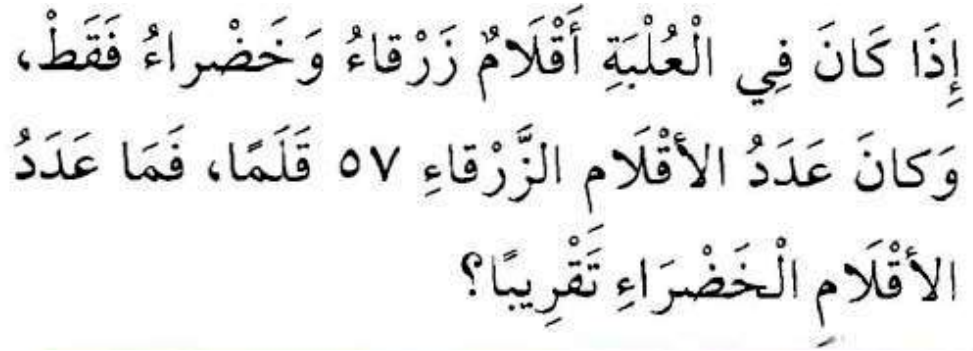 إِذَا كَانَ فِي الْعُلْبَةِ أَقْلَامٌ زَرْقاءُ وَخَضْراءُ فَقَطْ،
وَكانَ عَدَدُ الأقْلَامِ الزَّرْقاءِ ٥٧ قَلَمًا، فَمَا عَدَدُ
الأقْلَامِ الْخَضْرَاءِ تَقْرِيبًا؟